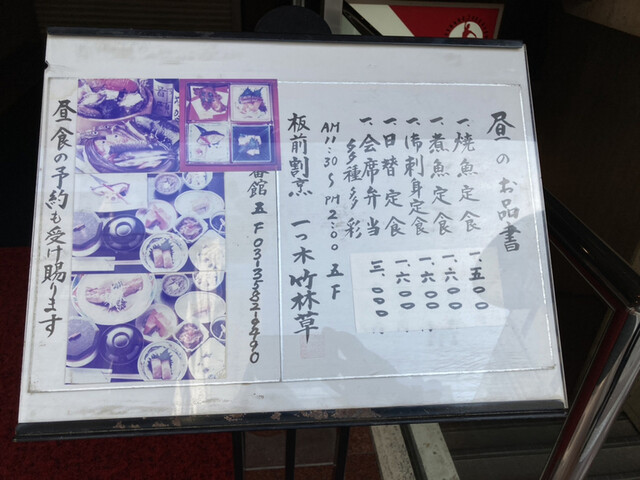 昼のお品書
一、焼魚定食 一、五〇〇
一、煮魚定食 一、六〇〇
一、御刺身定食 一、六〇〇
一、日替定食 一、六〇〇
一、会席弁当 三、〇〇〇
多種多彩
AM11:30〜PM2:00 五F
板前割烹 一つ木竹林草
番館 五F 03-3582-9890
昼食の予約も受け賜ります